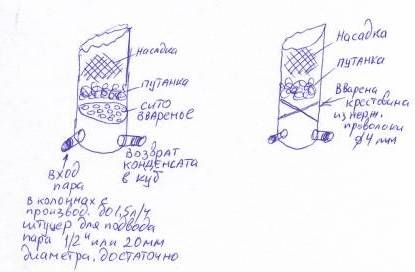 насадка
путанка
сито
вваренье
вход
пара
возврат
конденсата
в куб
в колоннах с
производ. до 1,5л/ч
штуцер для подвода
пара 1/2" или 20мм
диаметра, достаточно
насадка
путанка
вварена
крестовина
из нерж.
проволоки
ø4мм